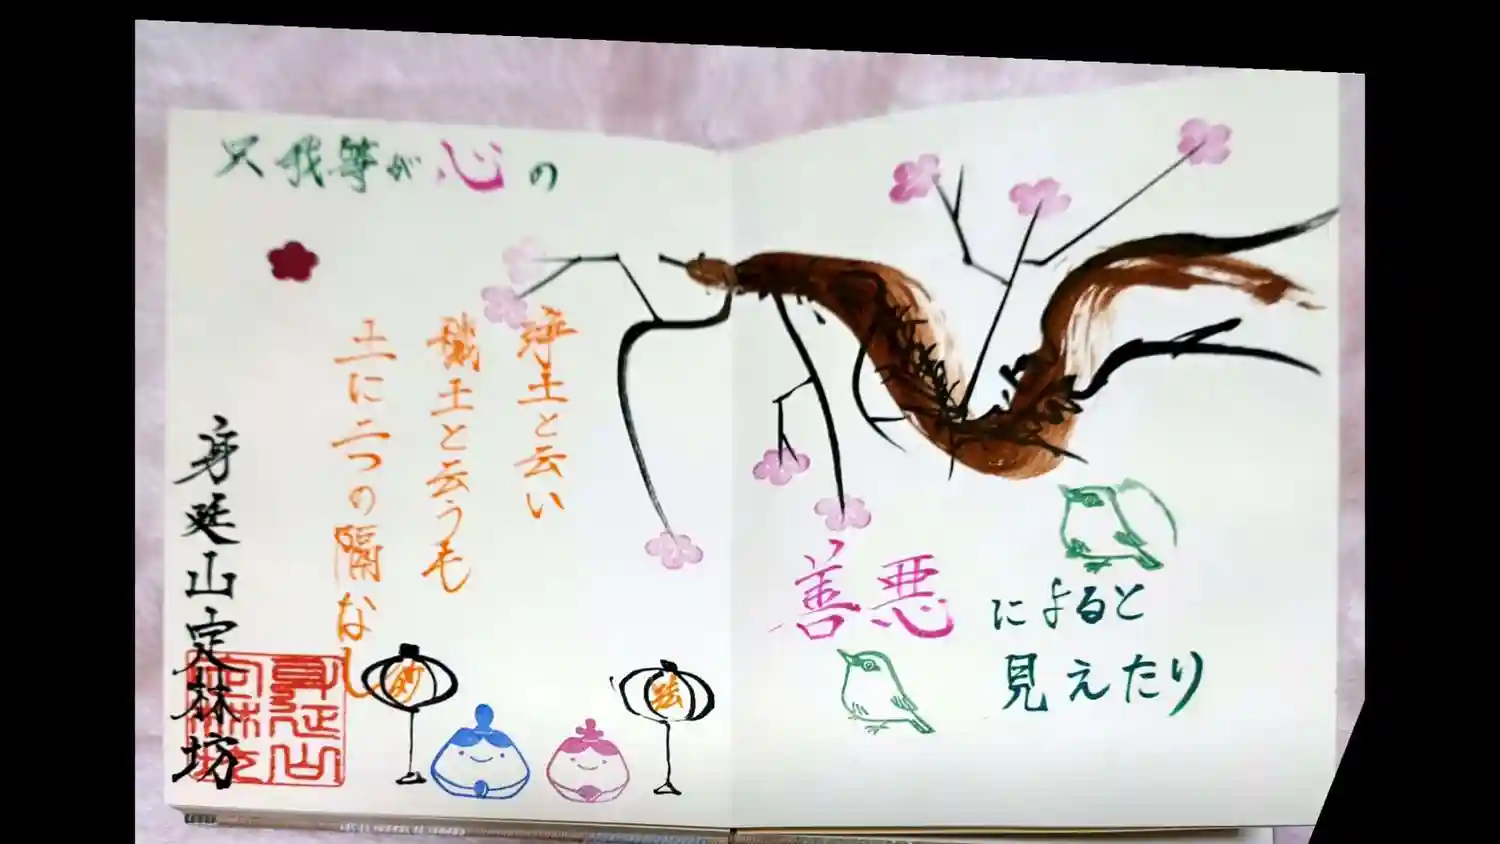 浄土と云い
穢土と云うも
土に二つの隔なし
只我等が心の
善悪によると
見えたり
妙
法
身延山定林坊
身延山定林坊